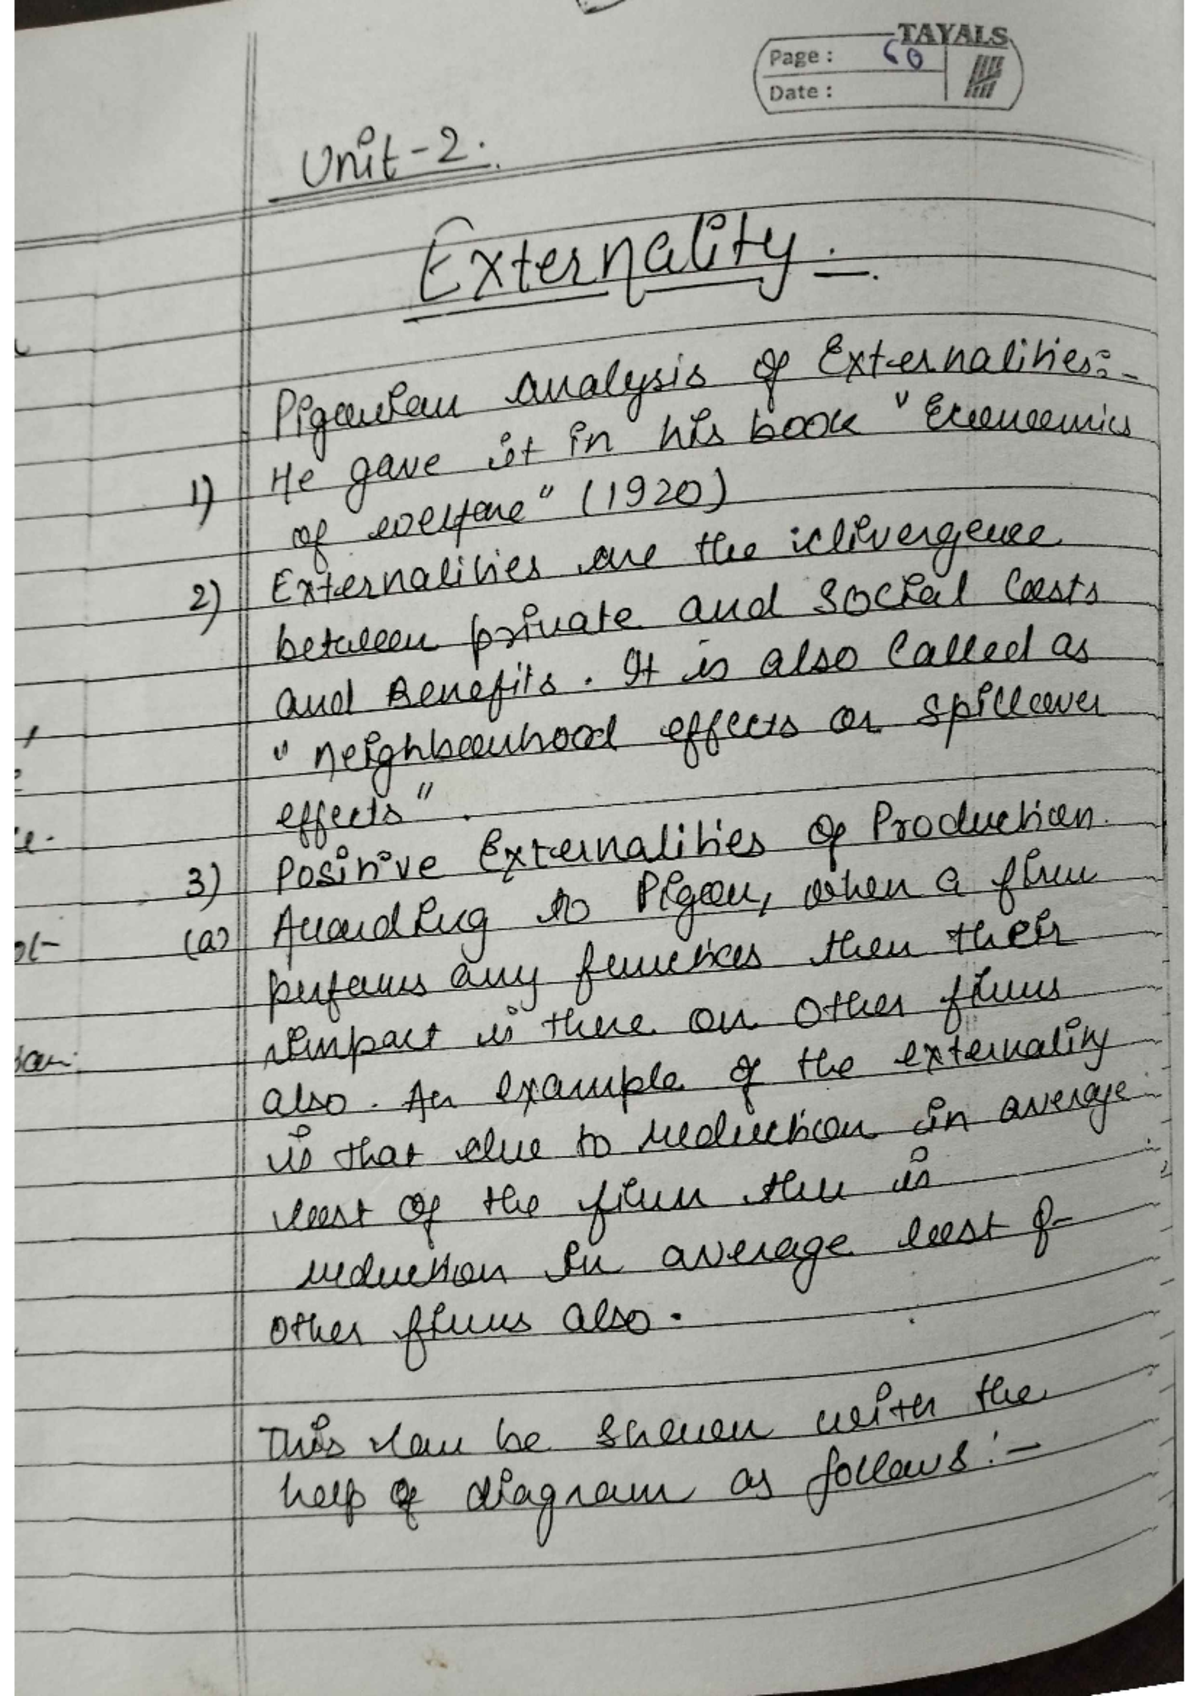 TAYALS
Page : 60
Date :
Unit-2.
Externality.
Pigouvian analysis of Externalities:-
1) He gave it in his book "Economics
of welfare" (1920)
2) Externalities are the divergence
between private and social Costs
and Benefits. It is also Called as
"neighbourhood effects or spillover
effects".
3) Positive Externalities of Production.
(a) According to Pigou, when a firm
performs any function then their
impact is there on other firms
also. An example of the externality
is that due to reduction in average
cost of the firm there is
reduction in average cost of
other firms also.
This can be shown with the
help of diagram as follows:-